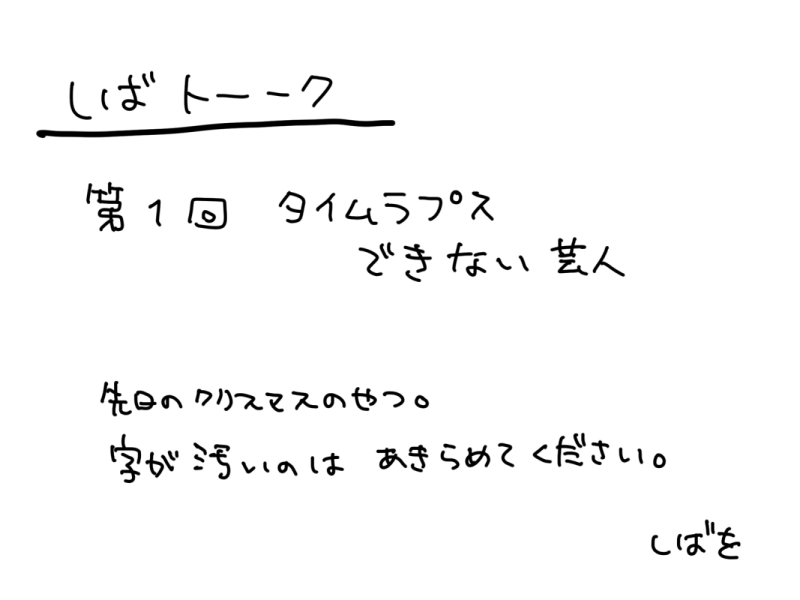 しばトーーク
第1回 タイムラプス
できない芸人
先日のクリスマスのやつ。
字が汚いのは あきらめてください。
しばを